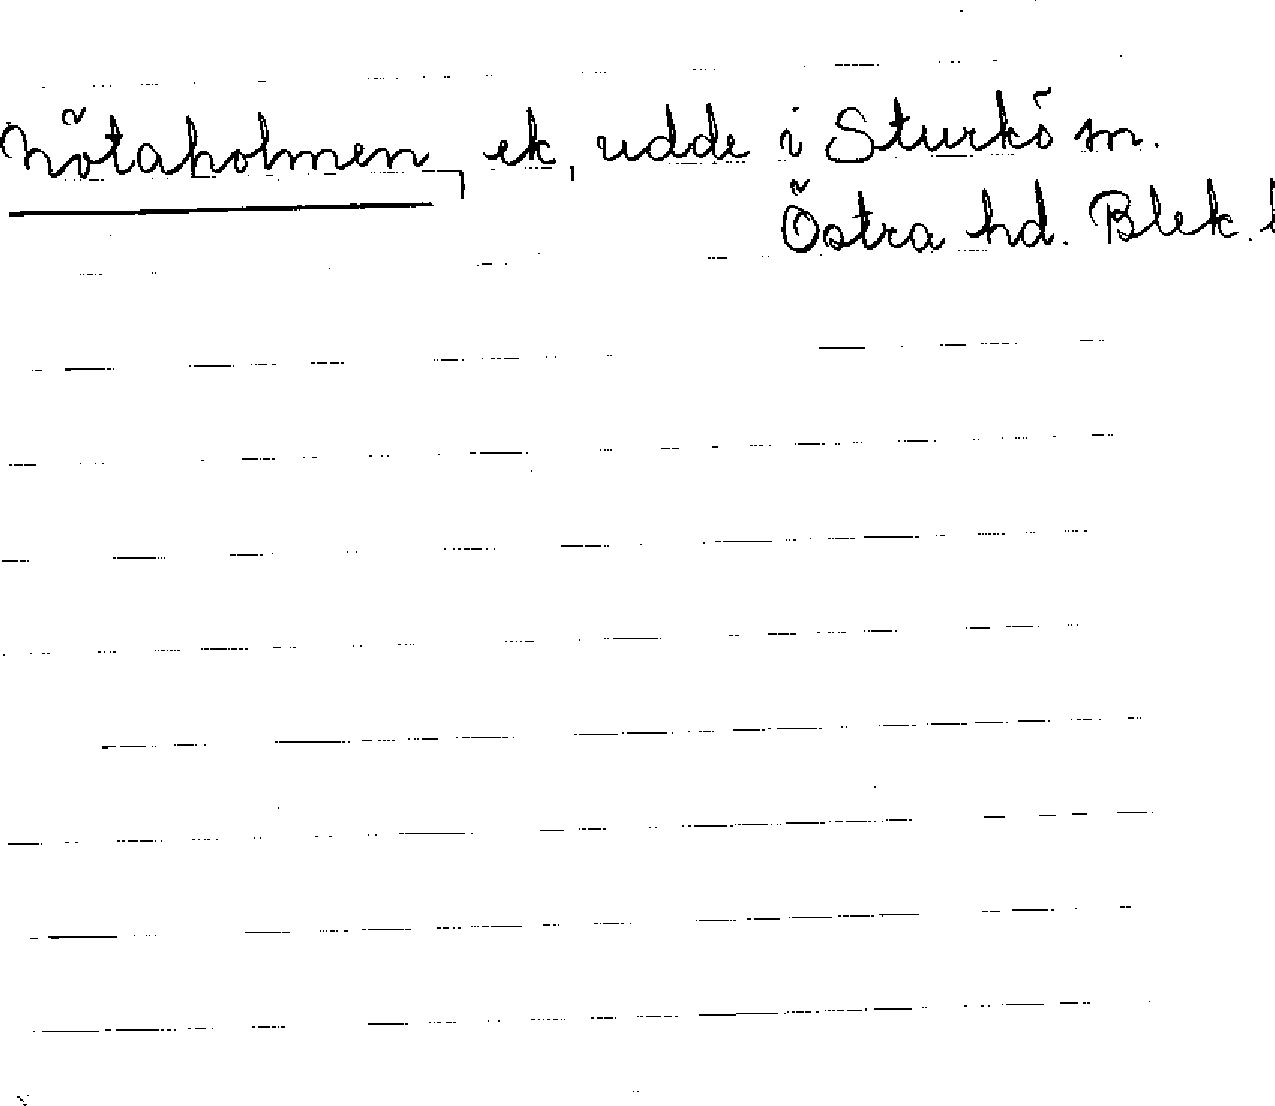 Nötaholmen, ek, udde i Sturkö sn.
Östra hd. Blek. l